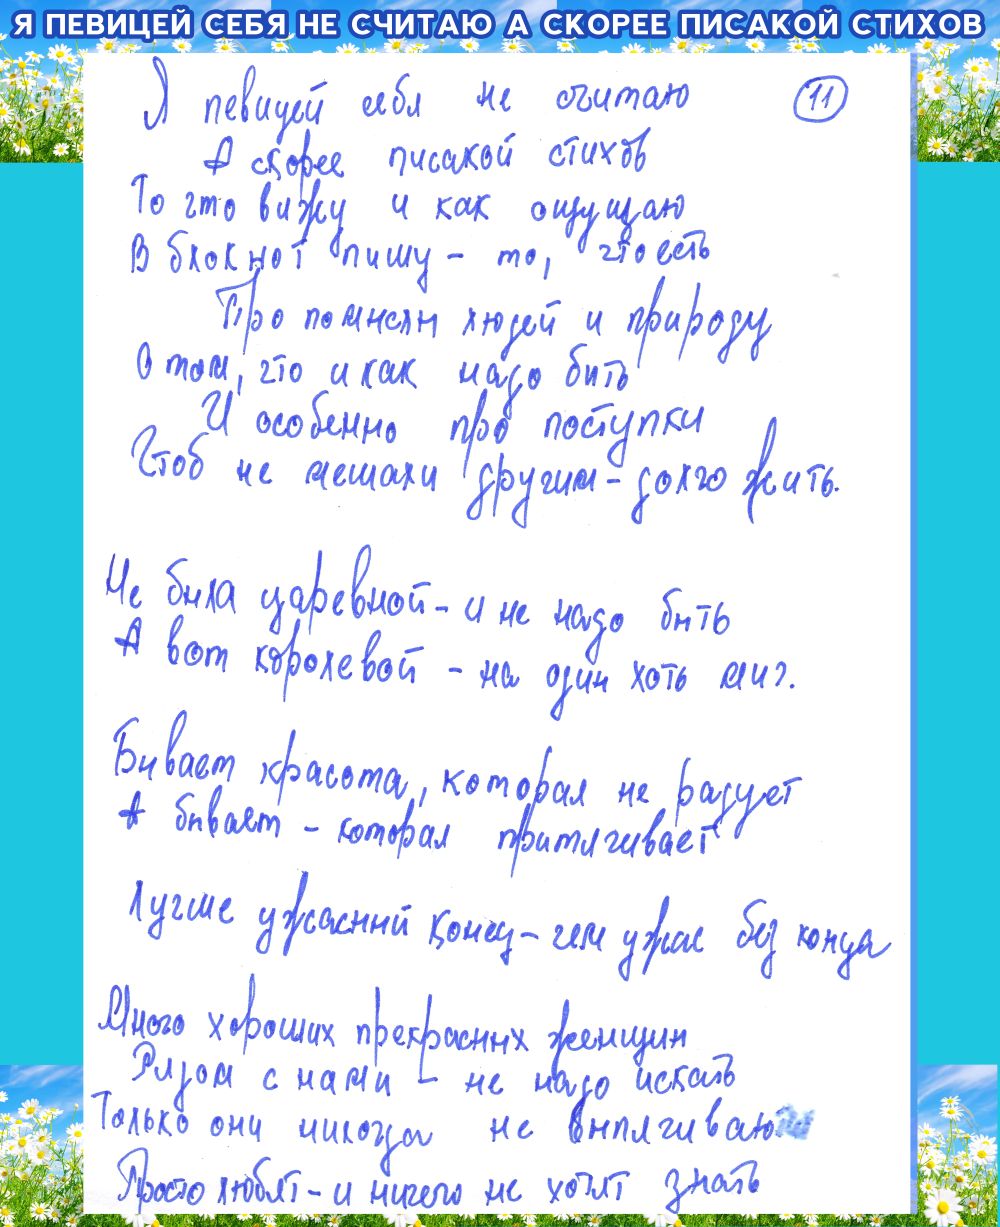 Я ПЕВИЦЕЙ СЕБЯ НЕ СЧИТАЮ А СКОРЕЕ ПИСАКОЙ СТИХОВ
Я певицей себя не считаю
11
А скорее писакой стихов
То что вижу и как ощущаю
В блокнот пишу - то, что есть
Про помыслы людей и природу
О том, что и как надо быть
И особенно про поступки
Чтоб не мешали другим - долго жить.
Не была царевной - и не надо быть
А вот королевой - на один хоть миг.
Бывает красота, которая не радует
А бывает - которая притягивает
Лучше ужасный конец - чем ужас без конца
Много хороших прекрасных женщин
Рядом с нами - не надо искать
Только они никогда не выпягивают
Просто любят - и ничего не хотят знать